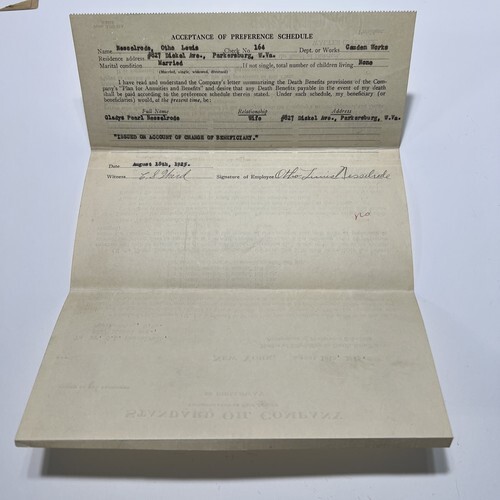 ACCEPTANCE OF PREFERENCE SCHEDULE
Name Resselrode, Otho Lewis Check No. 164 Dept. or Works Camden Works
Residence address #827 Dickel Ave., Parkersburg, W.Va.
Marital condition Married If not single, total number of children living None
(Married, single, widowed, divorced)
I have read and understand the Company's letter summarizing the Death Benefits provisions of the Company's "Plan for Annuities and Benefits" and desire that any Death Benefits payable in the event of my death shall be paid according to the preference schedule therein stated. Under such schedule, my beneficiary (or beneficiaries) would, at the present time, be:
Full Name Relationship Address
Gladys Pearl Resselrode Wife #827 Dickel Ave., Parkersburg, W.Va.
"ISSUED ON ACCOUNT OF CHANGE OF BENEFICIARY."
Date August 18th, 1925.
Witness Signature of Employee Otho Lewis Resselrode
STANDARD OIL COMPANY